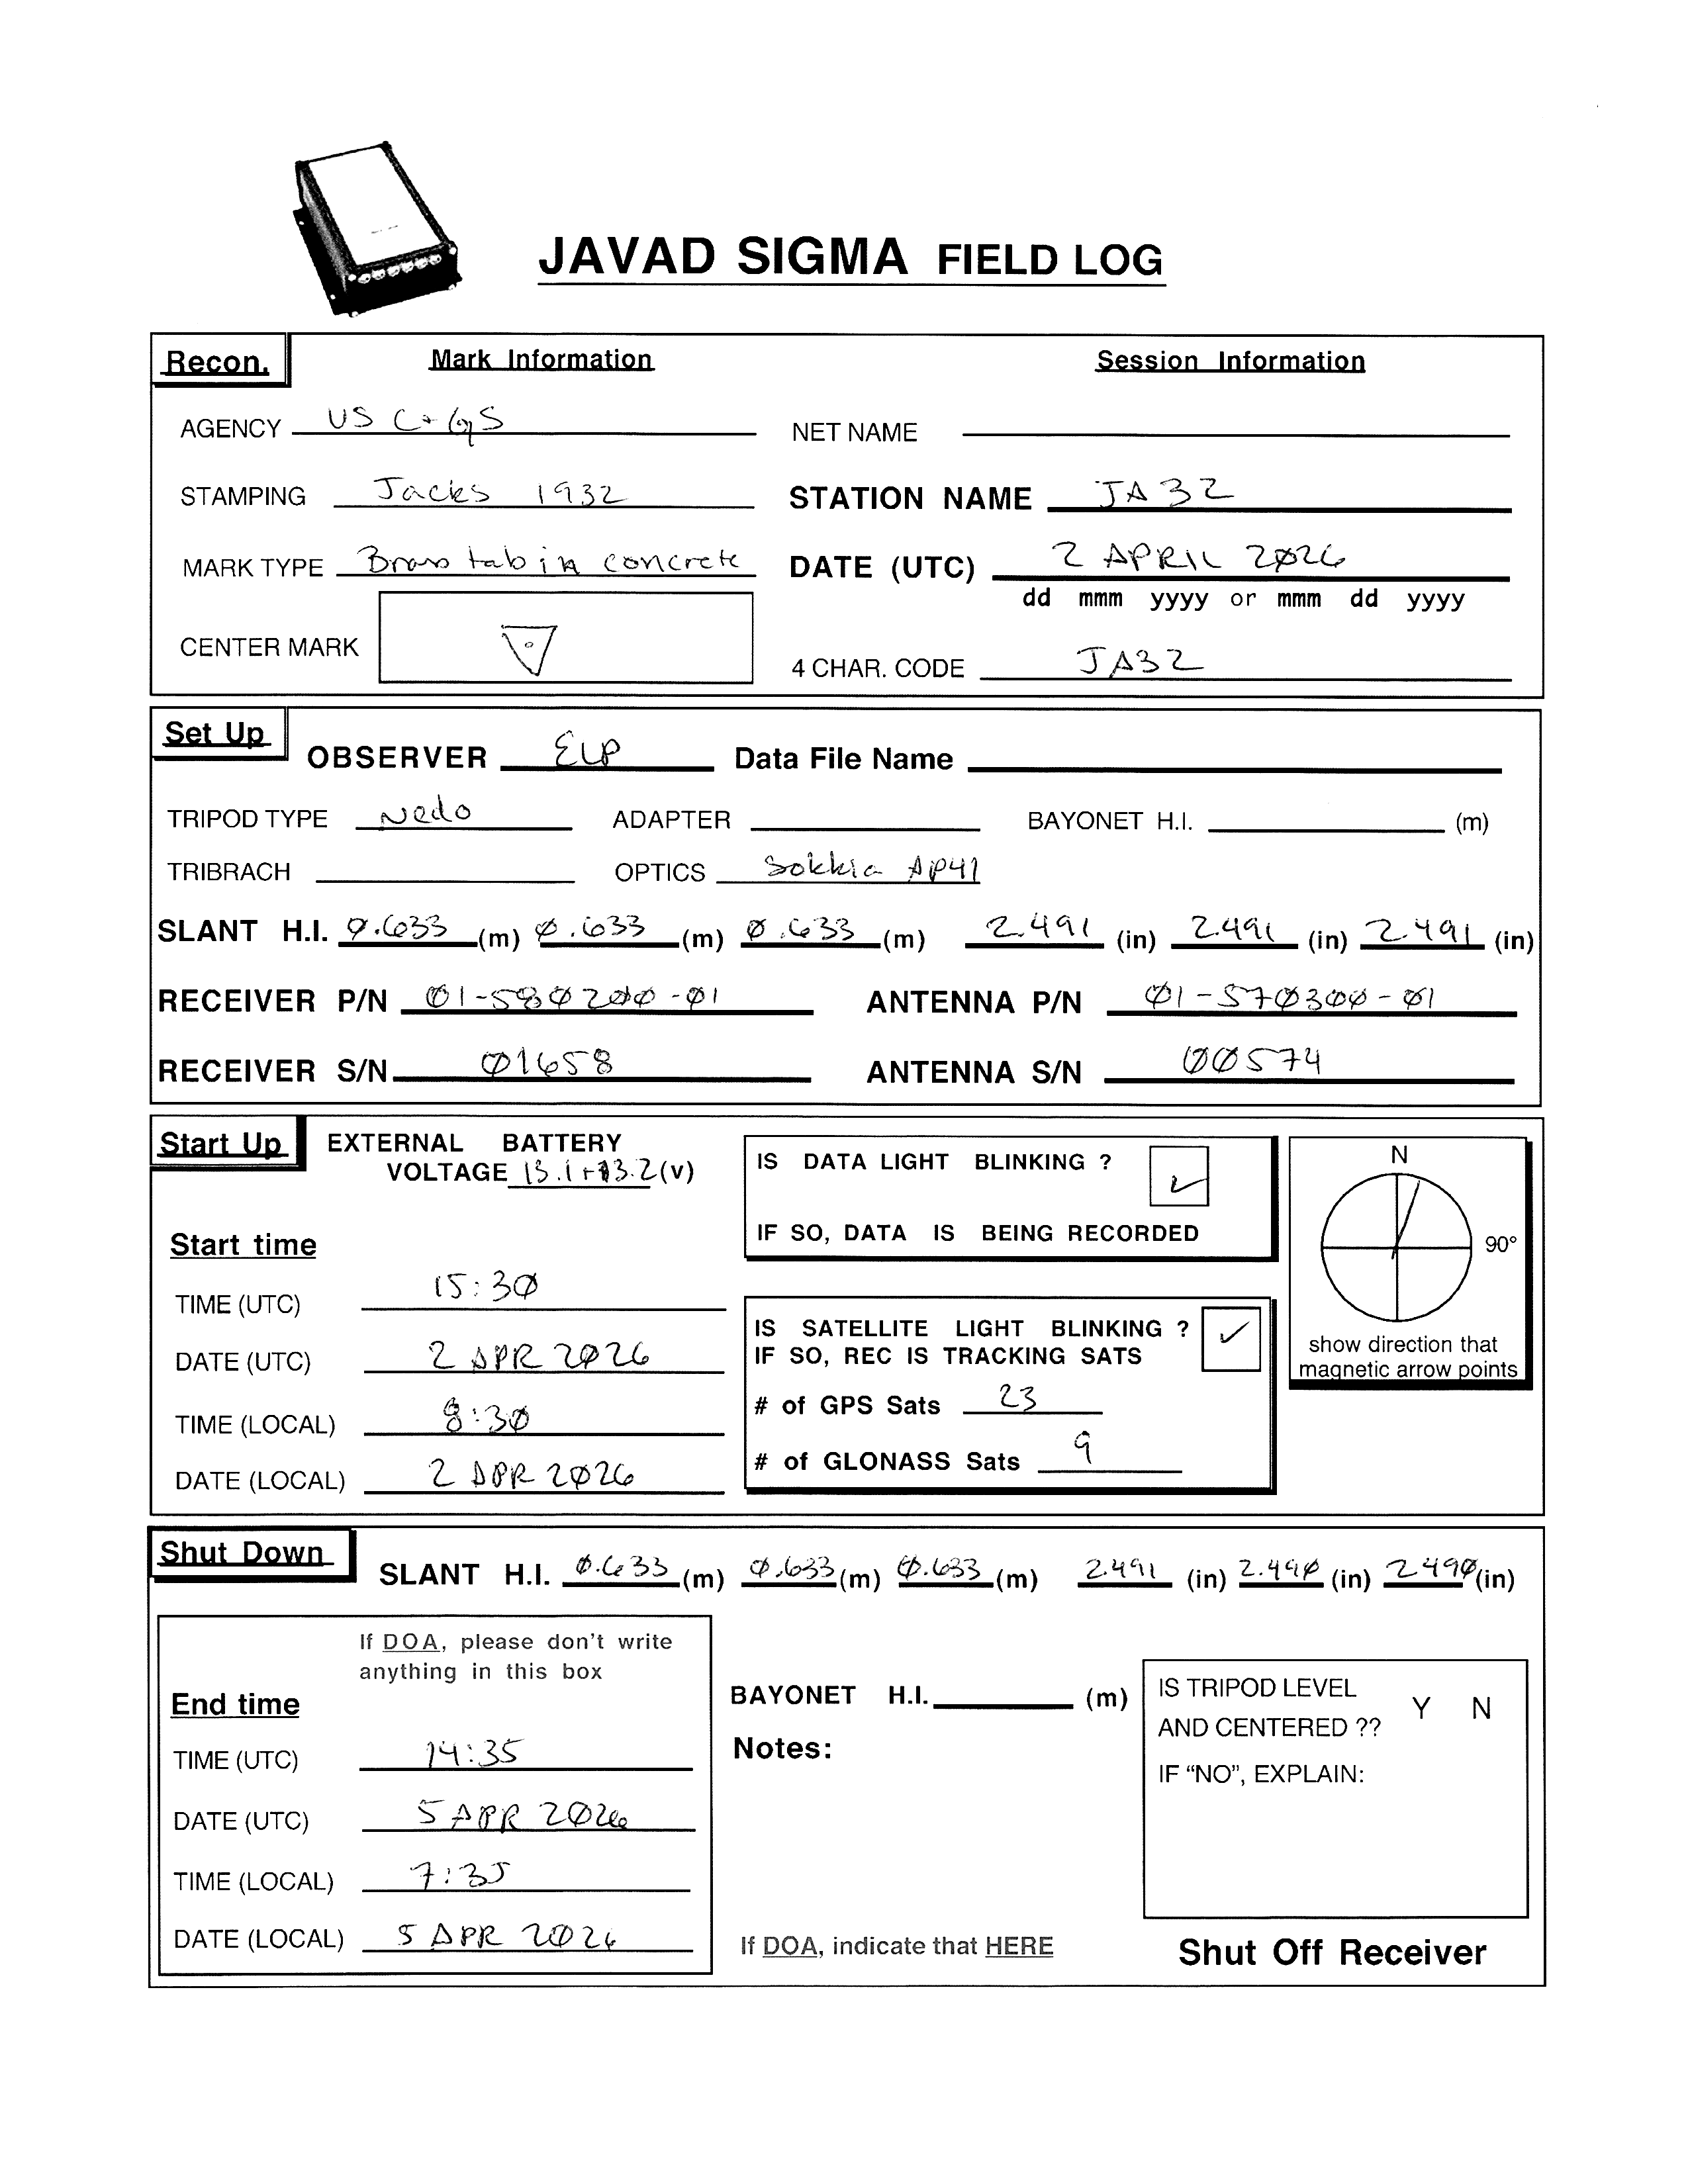 JAVAD SIGMA FIELD LOG
Recon.
Mark Information
Session Information
AGENCY US C+GS
NET NAME
STAMPING Jacks 1932
STATION NAME JA32
MARK TYPE Brass tab in concrete
DATE (UTC) 2 APRIL 2026
dd mmm yyyy or mmm dd yyyy
CENTER MARK
4 CHAR. CODE JA32
Set Up
OBSERVER ELP Data File Name
TRIPOD TYPE Nedo ADAPTER BAYONET H.I. (m)
TRIBRACH OPTICS Sokkia AP41
SLANT H.I. 0.633 (m) 0.633 (m) 0.633 (m) 2.491 (in) 2.491 (in) 2.491 (in)
RECEIVER P/N 01-580200-01 ANTENNA P/N 01-570300-01
RECEIVER S/N 01658 ANTENNA S/N 00574
Start Up
EXTERNAL BATTERY
VOLTAGE 13.1+13.2 (v)
IS DATA LIGHT BLINKING ? ✓
IF SO, DATA IS BEING RECORDED
N
90°
show direction that
magnetic arrow points
Start time
TIME (UTC) 15:30
DATE (UTC) 2 APR 2026
TIME (LOCAL) 8:30
DATE (LOCAL) 2 APR 2026
IS SATELLITE LIGHT BLINKING ? ✓
IF SO, REC IS TRACKING SATS
# of GPS Sats 23
# of GLONASS Sats 9
Shut Down
SLANT H.I. 0.633 (m) 0.633 (m) 0.633 (m) 2.491 (in) 2.490 (in) 2.490 (in)
If DOA, please don't write
anything in this box
End time
TIME (UTC) 14:35
DATE (UTC) 5 APR 2026
TIME (LOCAL) 7:35
DATE (LOCAL) 5 APR 2026
BAYONET H.I. (m)
Notes:
If DOA, indicate that HERE
IS TRIPOD LEVEL
AND CENTERED ?? Y N
IF “NO”, EXPLAIN:
Shut Off Receiver